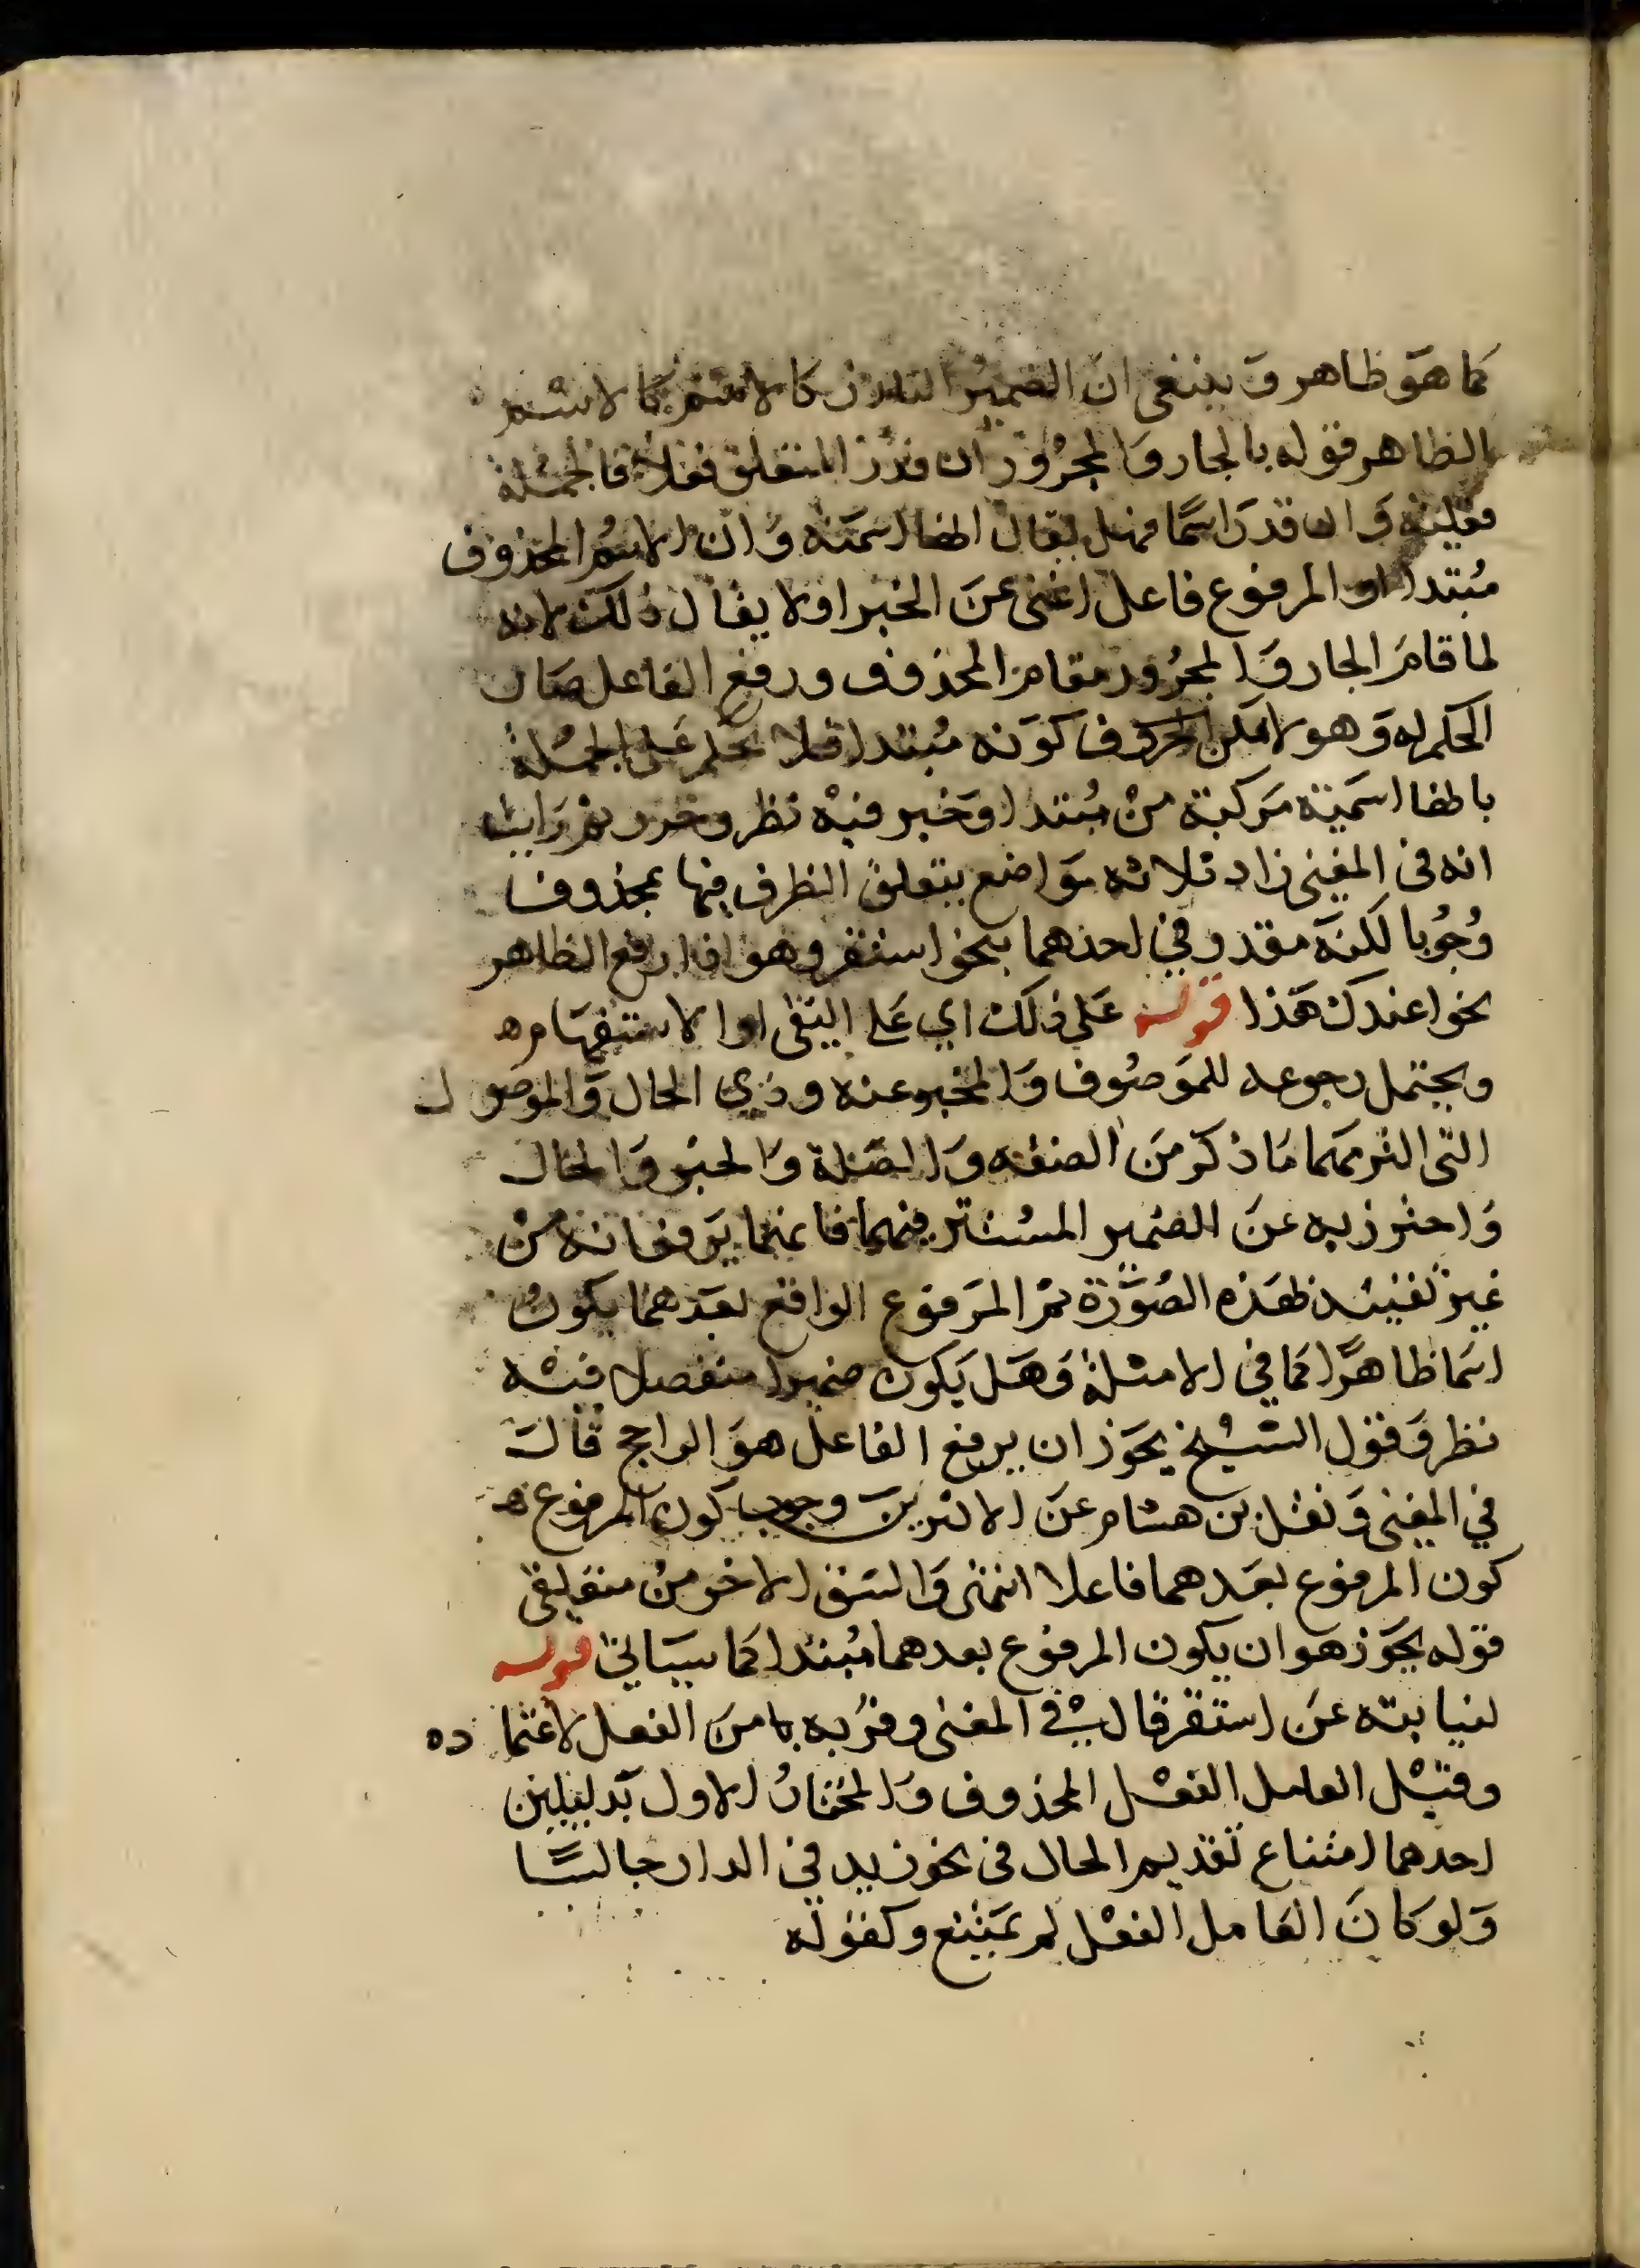 كما هو ظاهر وينبغي ان الضمير البارز كالاسم كالاسم
الظاهر قوله بالجار والمجرور ان قدر المتعلق فعلا فالجملة
فعلية وان قدر اسما فهل يقال انها اسمية وان الاسم المحذوف
مبتدا او المرفوع فاعل اغنى عن الخبر او لا يقال ذلك لانه
لما قام الجار والمجرور مقام المحذوف ورفع الفاعل صار
الحكم له وهو لا يمكن كونه مبتدا فلا يحكم على الجملة
بانها اسمية مركبة من مبتدا وخبر فيه نظر وحرر ثم رايت
انه في المغني زاد ثلاثه مواضع يتعلق الظرف فيها بمحذوف
وجوبا لكنه مقدر في احدهما بنحو استقر وهو اذا رفع الظاهر
نحو اعندك هذا قوله على ذلك اي على النفي او الاستفهام ه
ويحتمل رجوعه للموصوف والمخبر عنه وذي الحال والموصول
التي ما ذكر من الصفه والصلة والخبر والحال
واحترز به عن الضمير المستتر فيهما فانهما يرفعانه من
غير تقييد بهذه الصورة ثم المرفوع الواقع بعدهما يكون
اسما ظاهرا كما في الامثلة وهل يكون ضميرا منفصلا فيه
نظر وقول الشيخ يجوز ان يرفع الفاعل هو الراجح قال
في المغني ونقل بن هشام عن الاكثرين وجوب كون المرفوع ه
كون المرفوع بعدهما فاعلا انتهى والشق الاخر من متعلقي
قوله يجوز هو ان يكون المرفوع بعدهما مبتدا كما سياتي قوله
لنيابته عن استقر قال في المغنى وقربه من الفعل لاعتماده
وقيل العامل الفعل المحذوف والمختار الاول بدليلين
احدهما امتناع تقديم الحال في نحو زيد في الدار جالسًا
ولو كان العامل الفعل لم يمتنع وكقوله